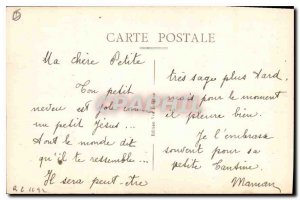 CARTE POSTALE
Ma chère Petite
Ton petit
neveu est joli comme
un petit Jésus ...
tout le monde dit
qu'il te ressemble ...
Il sera peut-être
très sage plus tard
mais pour le moment
il pleure bien.
Je l'embrasse
souvent pour sa
petite Tantine.
Maman